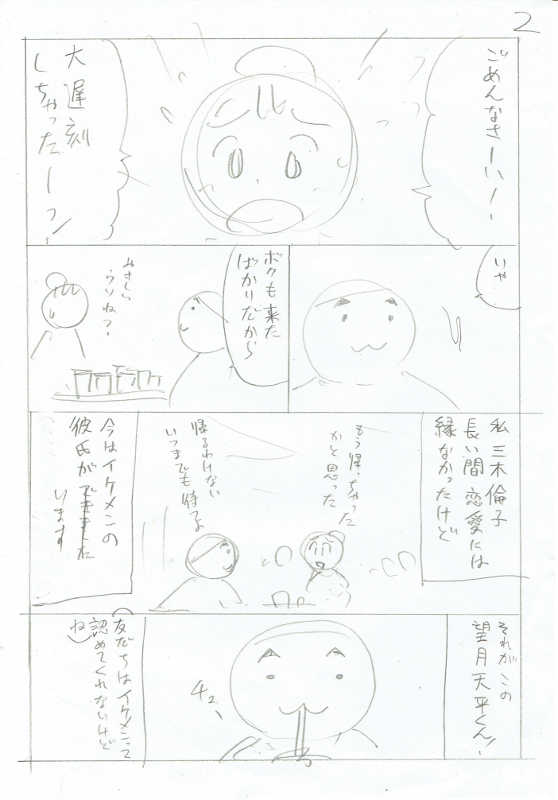 2
ごめんなさーい！
大遅刻
しちゃったーっ！
いや
ボクも来た
ばかりだから
やさしい
うそねっ！
私 三木倫子
長い間 恋愛には
縁なかったけど
もう帰っちゃった
かと思った
帰るわけない
いつまでも待つよ
今はイケメンの
彼氏が
います
それがこの
望月天平くん！
チュー
（友だちはイケメンって
認めてくれないけど
ね）